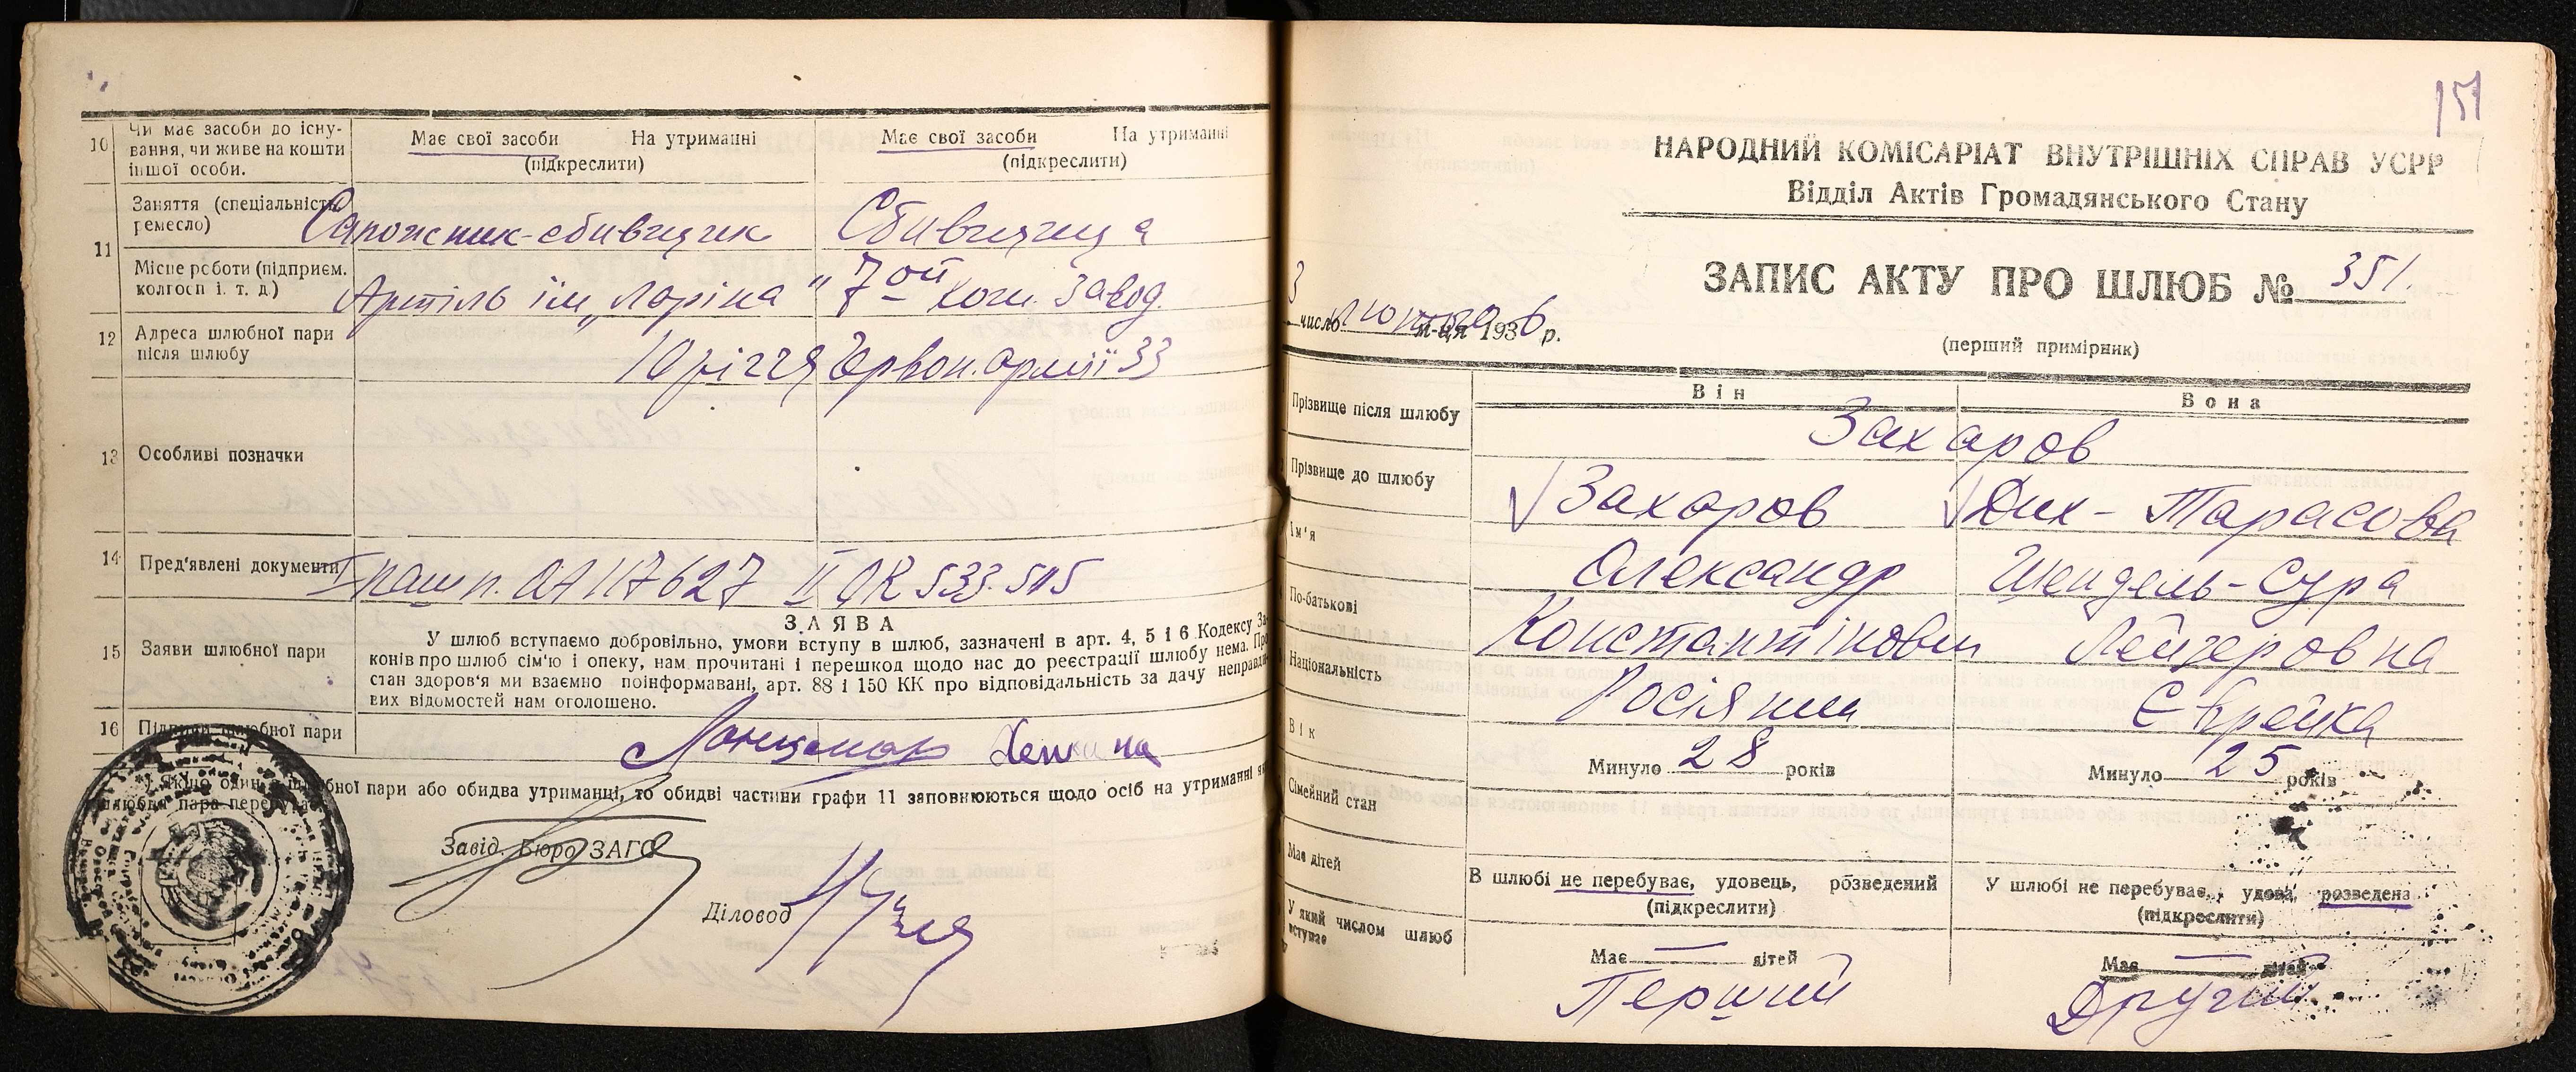 10 Чи має засоби до існу-
вання, чи живе на кошти
іншої особи.
Має свої засоби На утриманні
(підкреслити)
Має свої засоби На утриманні
(підкреслити)
11 Заняття (спеціальність,
ремесло)
Сапожник-сбивщик Сбивщица
Місце роботи (підприєм.
колгосп і. т. д)
Артіль їм „Ларіна" 7ой кож. завод.
12 Адреса шлюбної пари
після шлюбу
10 річчя Червон. армії 33
13 Особливі позначки
14 Пред'явлені документи
I пашп. ОА 117627 II ОК 533.515
15 Заяви шлюбної пари
ЗАЯВА
У шлюб вступаємо добровільно, умови вступу в шлюб, зазначені в арт. 4, 5 і 6 Кодексу За-
конів про шлюб сім'ю і опеку, нам прочитані і перешкод щодо нас до реєстрації шлюбу нема. Про
стан здоров'я ми взаємно поінформавані, арт. 88 і 150 КК про відповідальність за дачу неправди-
вих відомостей нам оголошено.
16 Підписи шлюбної пари
Якщо один з шлюбної пари або обидва утриманці, то обидві частини графи 11 заповнюються щодо осіб на утриманні
шлюбна пара перебуває
Завід. Бюро ЗАГС
Діловод
151
НАРОДНИЙ КОМІСАРІАТ ВНУТРІШНІХ СПРАВ УСРР
Відділ Актів Громадянського Стану
ЗАПИС АКТУ ПРО ШЛЮБ № 351.
3 число лютого м-ця 1936 р.
(перший примірник)
Він Вона
Прізвище після шлюбу
Захаров
Прізвище до шлюбу
Захаров Дих-Тарасова
Ім'я
Олександр Шендель-Сура
По-батькові
Константінович Лейзеровна
Національність
Росіянин Єврейка
Вік
Минуло 28 років Минуло 25 років
Сімейний стан
В шлюбі не перебуває, удовець, розведений
(підкреслити)
У шлюбі не перебуває, удова, розведена
(підкреслити)
Має дітей
Має — дітей Має — дітей
У який числом шлюб
вступає
Перший Другий